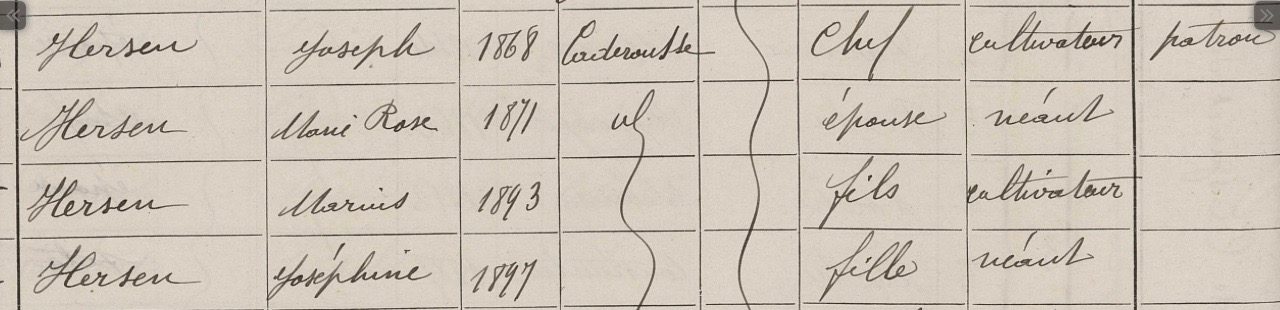 Hersen Joseph 1868 Caderousse Chef cultivateur patron
Hersen Marie Rose 1871 id épouse néant
Hersen Marius 1893 fils cultivateur
Hersen Joséphine 1897 fille néant